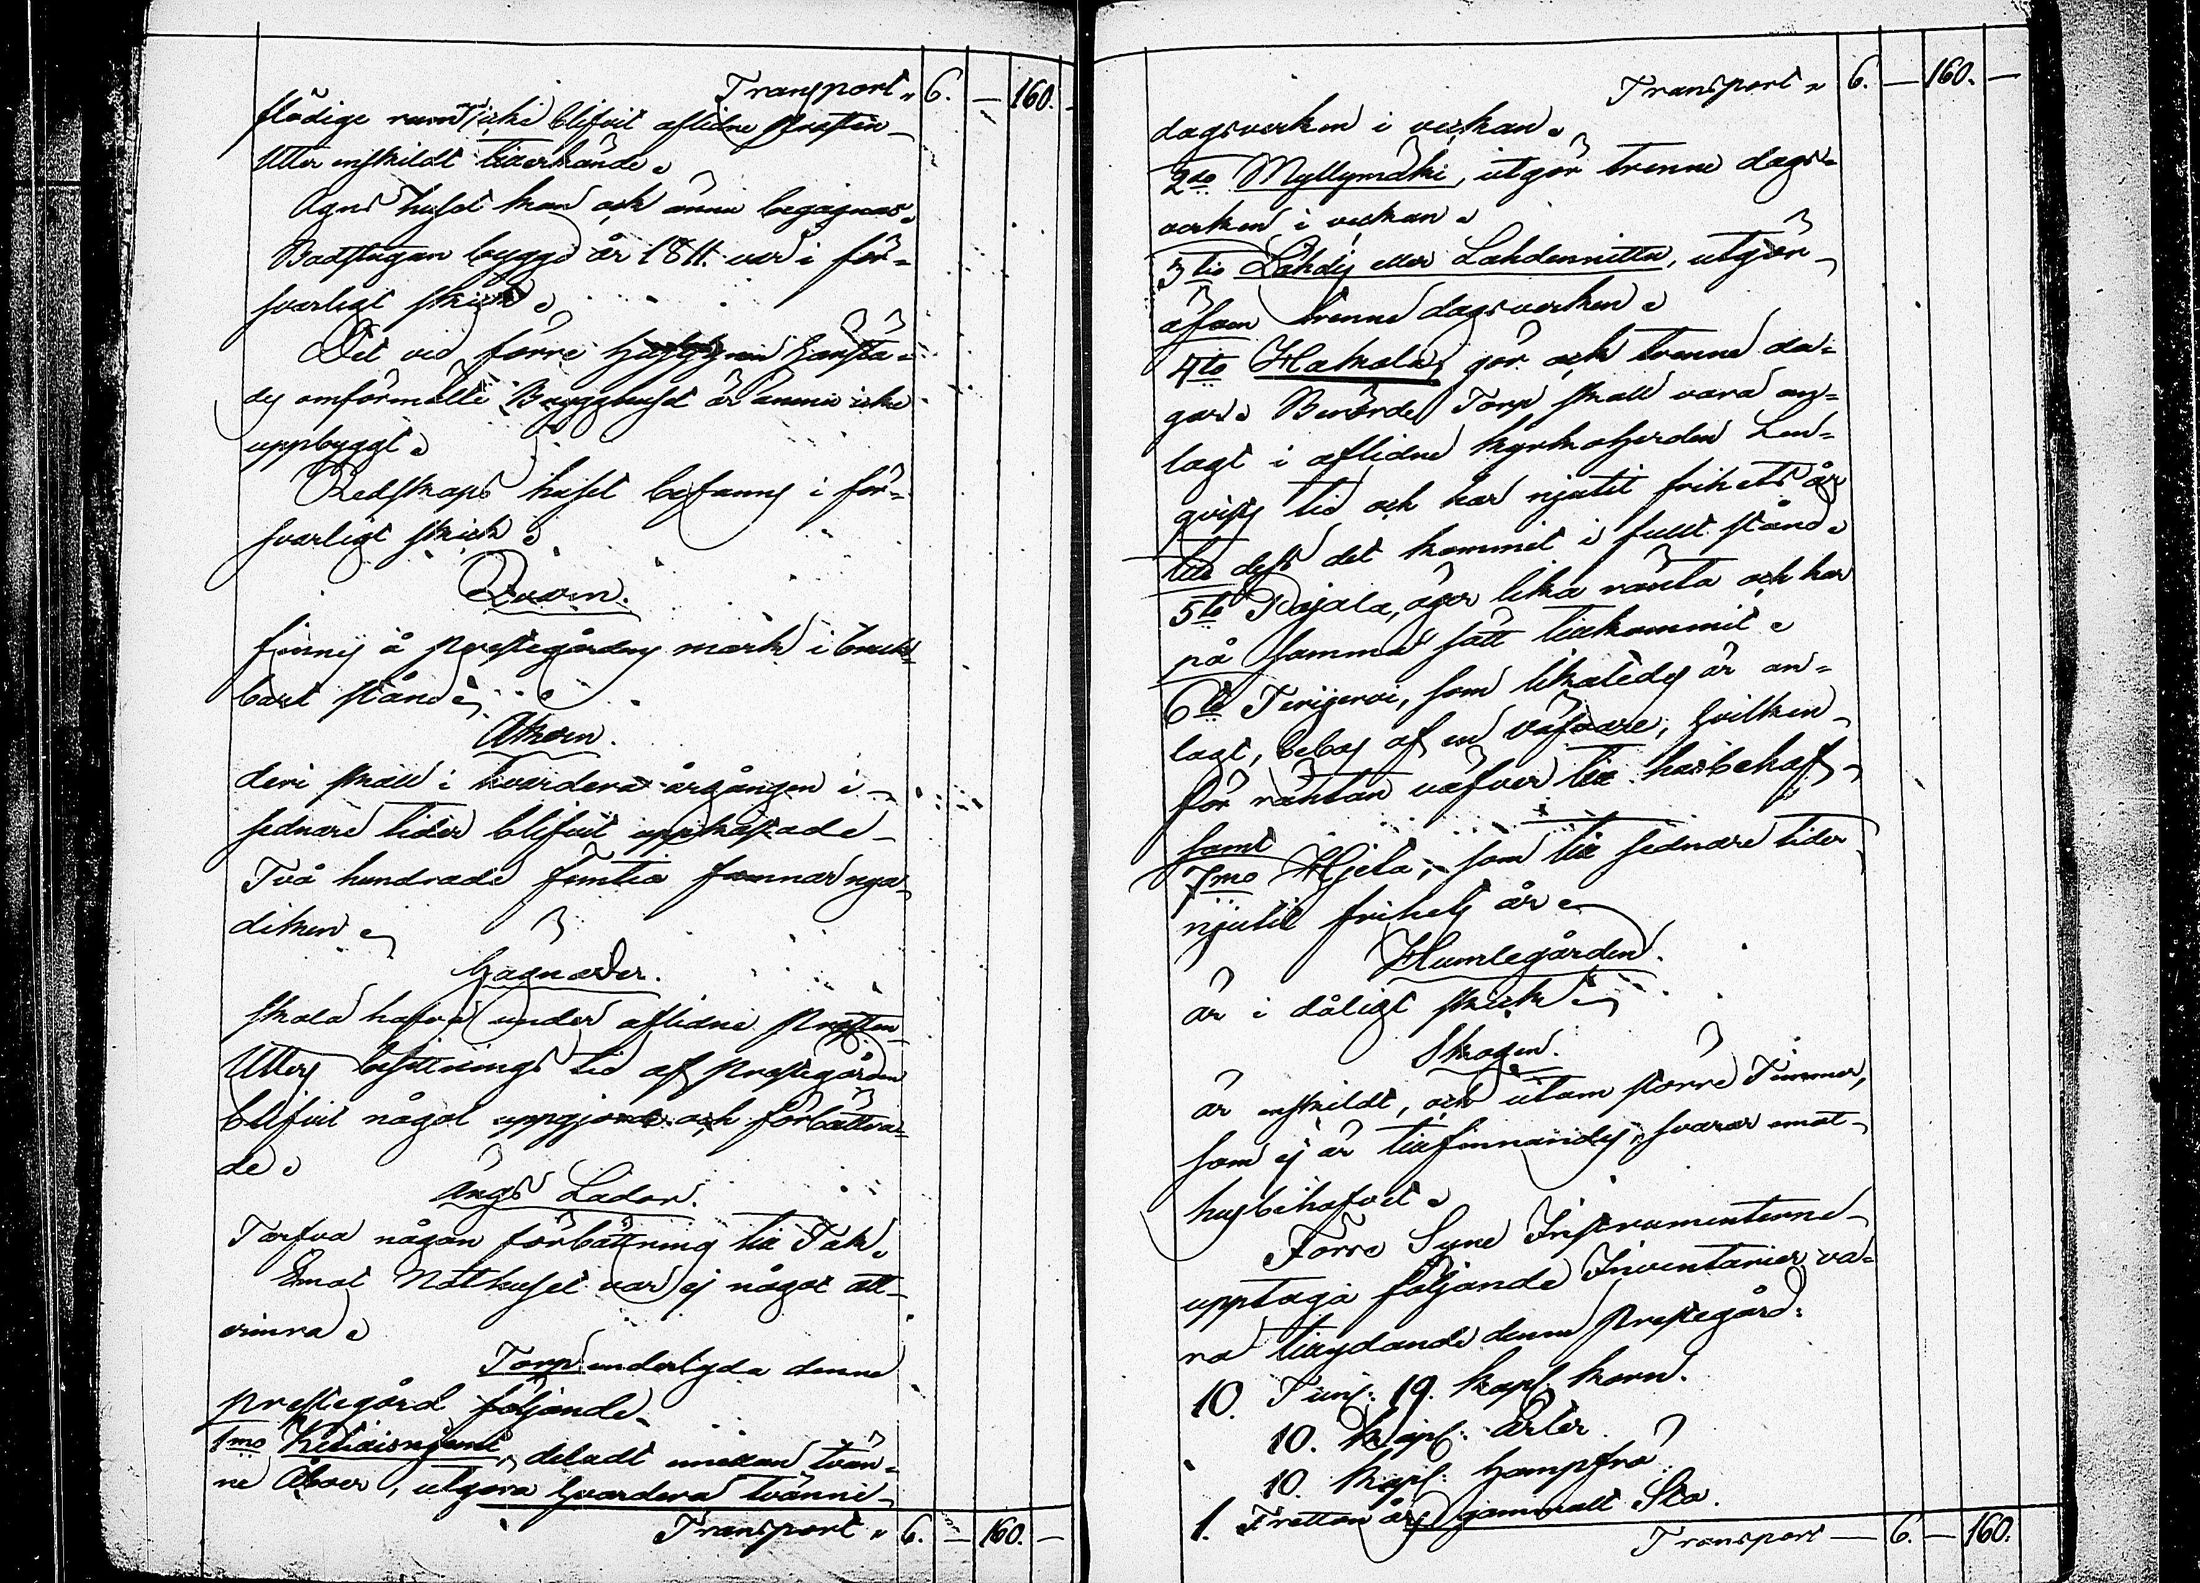 Transport „ 6. — 160. —
flödige rum icke blifvit aflidne Prosten
Utter enskildt tillerkände.
Agnshuset kan ock ännu begagnas.
Badstugan byggd år 1811. var i för=
svarligt skick.
Det vid förre Hussynen Hans=
des omförmälte Brygghuset är ännu icke
uppbyggt.
Redskaps huset befanns i för=
svarligt skick.
Qvarn.
finnes å Prestegårdens mark i bruk=
bart stånd.
Åkern.
deri skall i hvardera årgången i
sednare tider blifvit uppkastade
Två hundrade femtio famnar nya
diken.
Hagnader.
skola hafva under aflidne Prosten
Utters besittnings tid af Prestegården
blifvit något uppgjorde och förbättra=
de.
Ängs Lador.
Tarfva någon förbättring till Tak.
Emot Nothuset var ej något att
erinra.
Torp underlyda denne
Prestegård följande.
1mo deladt emellan tvän=
ne Åboer, utgöra hvardera tvänne
Transport „ 6. — 160. —
Transport „ 6. — 160. —
dagsverken i veckan.
2do Myllymäki, utgör trenne dags=
verken i veckan.
3tio Lahdis eller Lahdennitta, utgör
äfven trenne dagsverken.
4to Hakala, gör ock trenne da=
gar. Berörde Torp skall vara an=
lagt i aflidne Kyrkoherden Len=
qvists tid och har njutit frihets år
till dess det kommit i fullt stånd.
5to Rajala, äger lika ränta och har
på samma sätt tillkommit.
6to som likaledes är an=
lagt, bebos af en väfvare, hvilken
för räntan väfver till husbehof,
samt
7mo Hjeta, som till sednare tider
njutit frihets år.
Humlegården.
är i dåligt skick.
Skogen.
är enskildt, och utom större Timmer,
som ej är tillfinnandes, svarar emot
husbehofvet.
Förre Syne Instrumenterne
upptaga följande Inventarier va=
ra tillydande denne Prestegård:
10. Tun: 19. Kapl. Korn.
10. Kapl. Ärter.
10. Kapl. Hampfrö
1. Tretton års gammalt Sto.
Transport — 6. — 160.